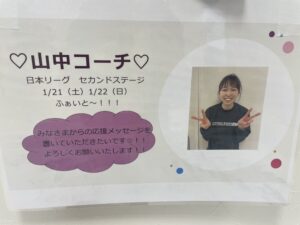 ♡山中コーチ♡
日本リーグ　セカンドステージ
1/21（土）1/22（日）
ふぁいと～！！！
みなさまからの応援メッセージを
書いていただきたいです☆！！
よろしくお願いいたします！！